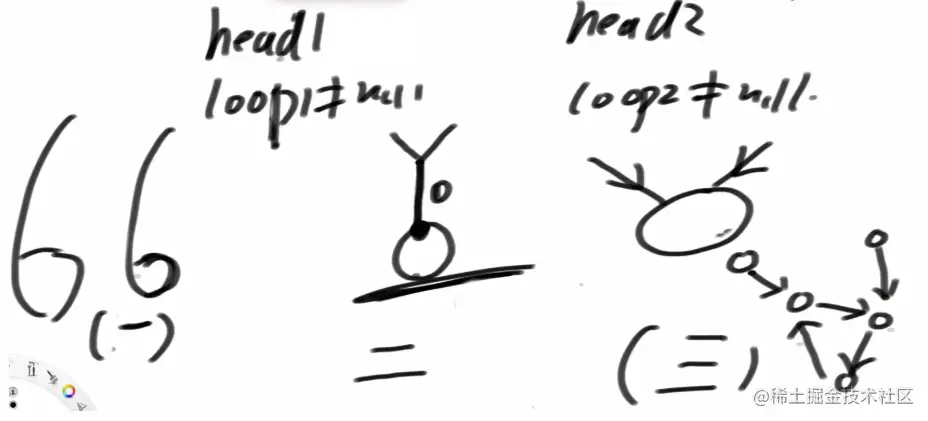 head1
head2
loop1≠null
loop2≠null.
66
(一)
二
(三)
@稀土掘金技术社区